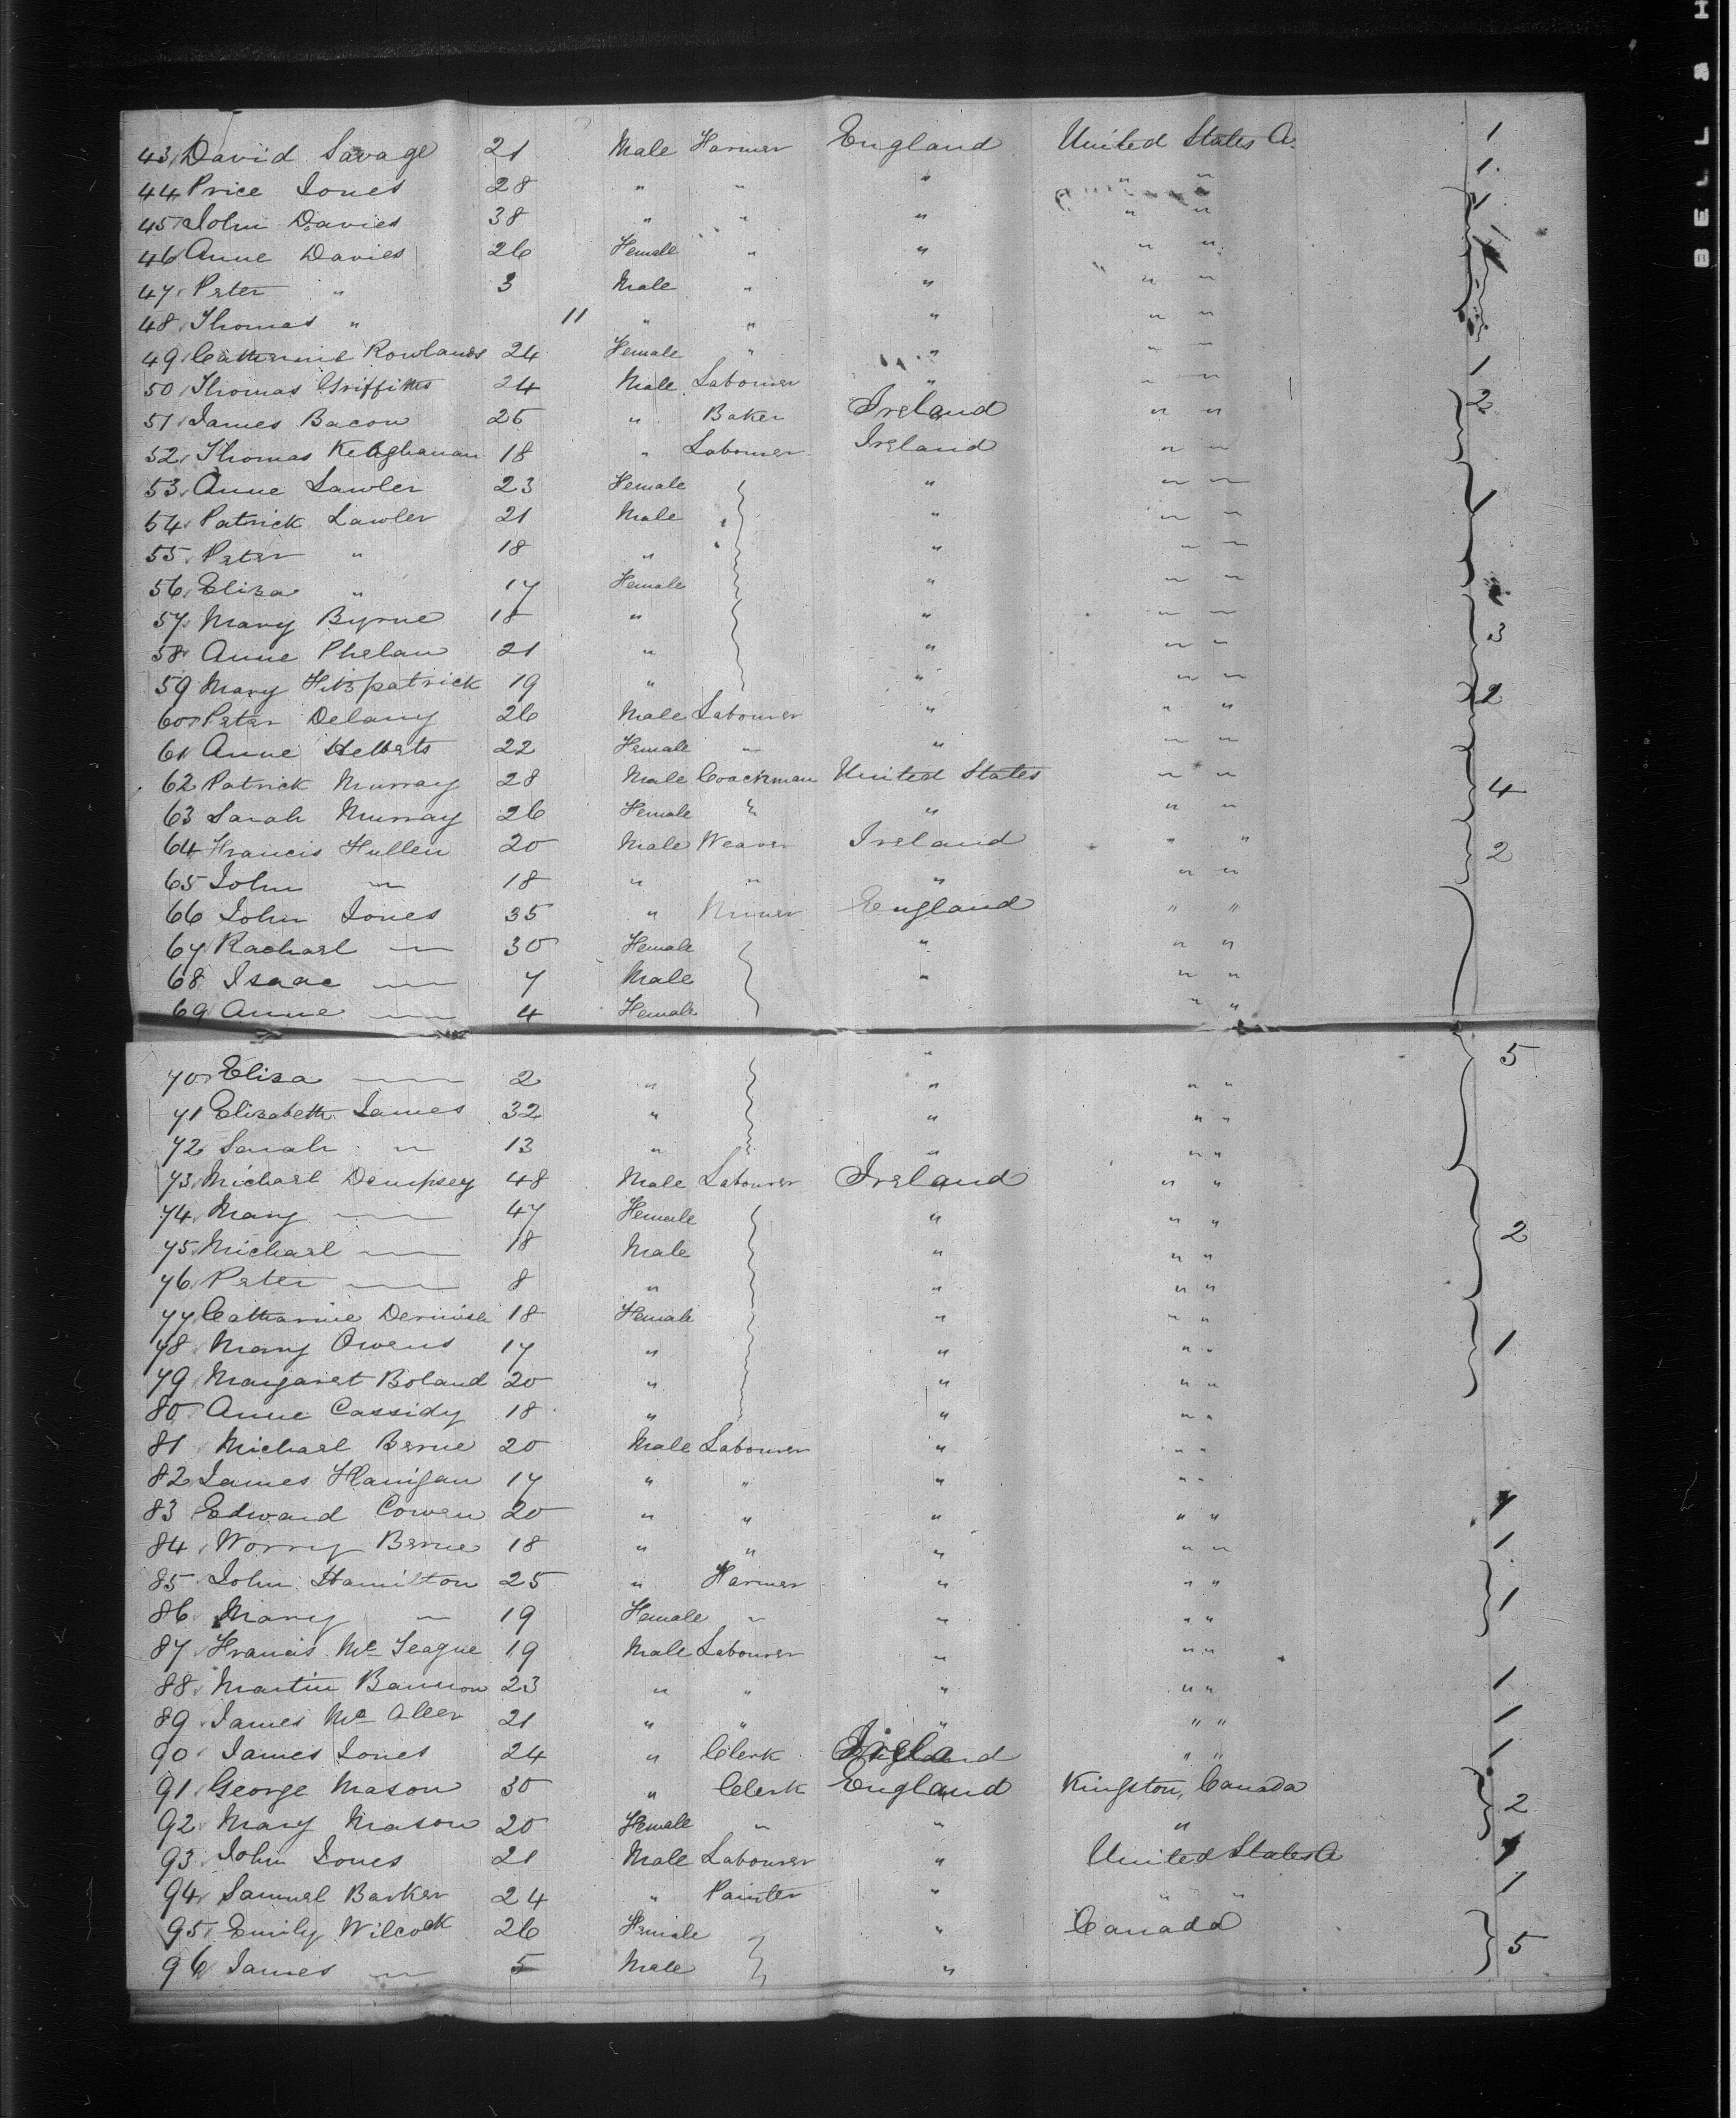 43 David Savage 21 Male Farmer England United States A. 1
44 Price Jones 28 " " " " " 1
45 John Davies 38 " " " " " 1
46 Anne Davies 26 Female " " " "
47 Peter " 3 Male " " " "
48 Thomas " 11 " " " " "
49 Catherine Rowlands 24 Female " " " "
50 Thomas Griffiths 24 Male Labourer " " " 1
51 James Bacon 25 " Baker Ireland " " 2
52 Thomas 18 " Labourer Ireland " "
53 Anne Lawler 23 Female " " "
54 Patrick Lawler 21 Male " " " 1
55 Peter " 18 " " " "
56 Eliza " 17 Female " " "
57 Mary Byrne 18 " " " "
58 Anne Phelan 21 " " " " 3
59 Mary Fitzpatrick 19 " " " "
60 Peter Delany 26 Male Labourer " " " 2
61 Anne 22 Female " " " "
62 Patrick Murray 28 Male Coachman United States " " 4
63 Sarah Murray 26 Female " " "
64 Francis Hullen 20 Male Weaver Ireland " " 2
65 John " 18 " " " " "
66 John Jones 35 " Miner England " "
67 Rachael — 30 Female " " "
68 Isaac — 7 Male " " "
69 Anne — 4 Female " "
70 Eliza — 2 " " " " 5
71 Elizabeth James 32 " " " "
72 Sarah " 13 " " " "
73 Michael Dempsey 48 Male Labourer Ireland " "
74 Mary — 47 Female " " "
75 Michael — 18 Male " " " 2
76 Peter — 8 " " " "
77 Catharine 18 Female " " "
78 Mary Owens 17 " " " " 1
79 Margaret Boland 20 " " " "
80 Anne Cassidy 18 " " " "
81 Michael Berne 20 Male Labourer " " "
82 James Flanigan 17 " " " " "
83 Edward Cowen 20 " " " " " 1
84 Worry Berne 18 " " " " " 1
85 John Hamilton 25 " Farmer " " "
86 Mary " 19 Female " " " " 1
87 Francis Mc Teague 19 Male Labourer " " "
88 Martin Bannon 23 " " " " " 1
89 James Mc Aleer 21 " " " " " 1
90 James Jones 24 " Clerk " " 1
91 George Mason 30 " Clerk England Kingston, Canada
92 Mary Mason 20 Female " " " 2
93 John Jones 21 Male Labourer " United States A 1
94 Samuel Barker 24 " Painter " " " 1
95 Emily Wilcock 26 Female " Canada
96 James " 5 Male " 5
BELL & H